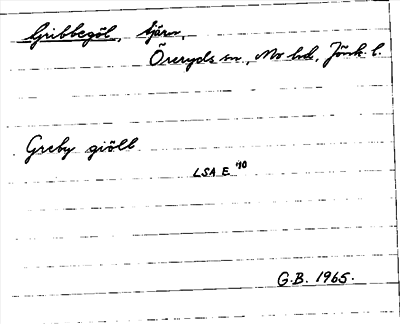 Gribbegöl, tjärn,
Öreryds sn, Mo hd, Jönk. l.
Greby giöll
LSA E 40
G.B. 1965.